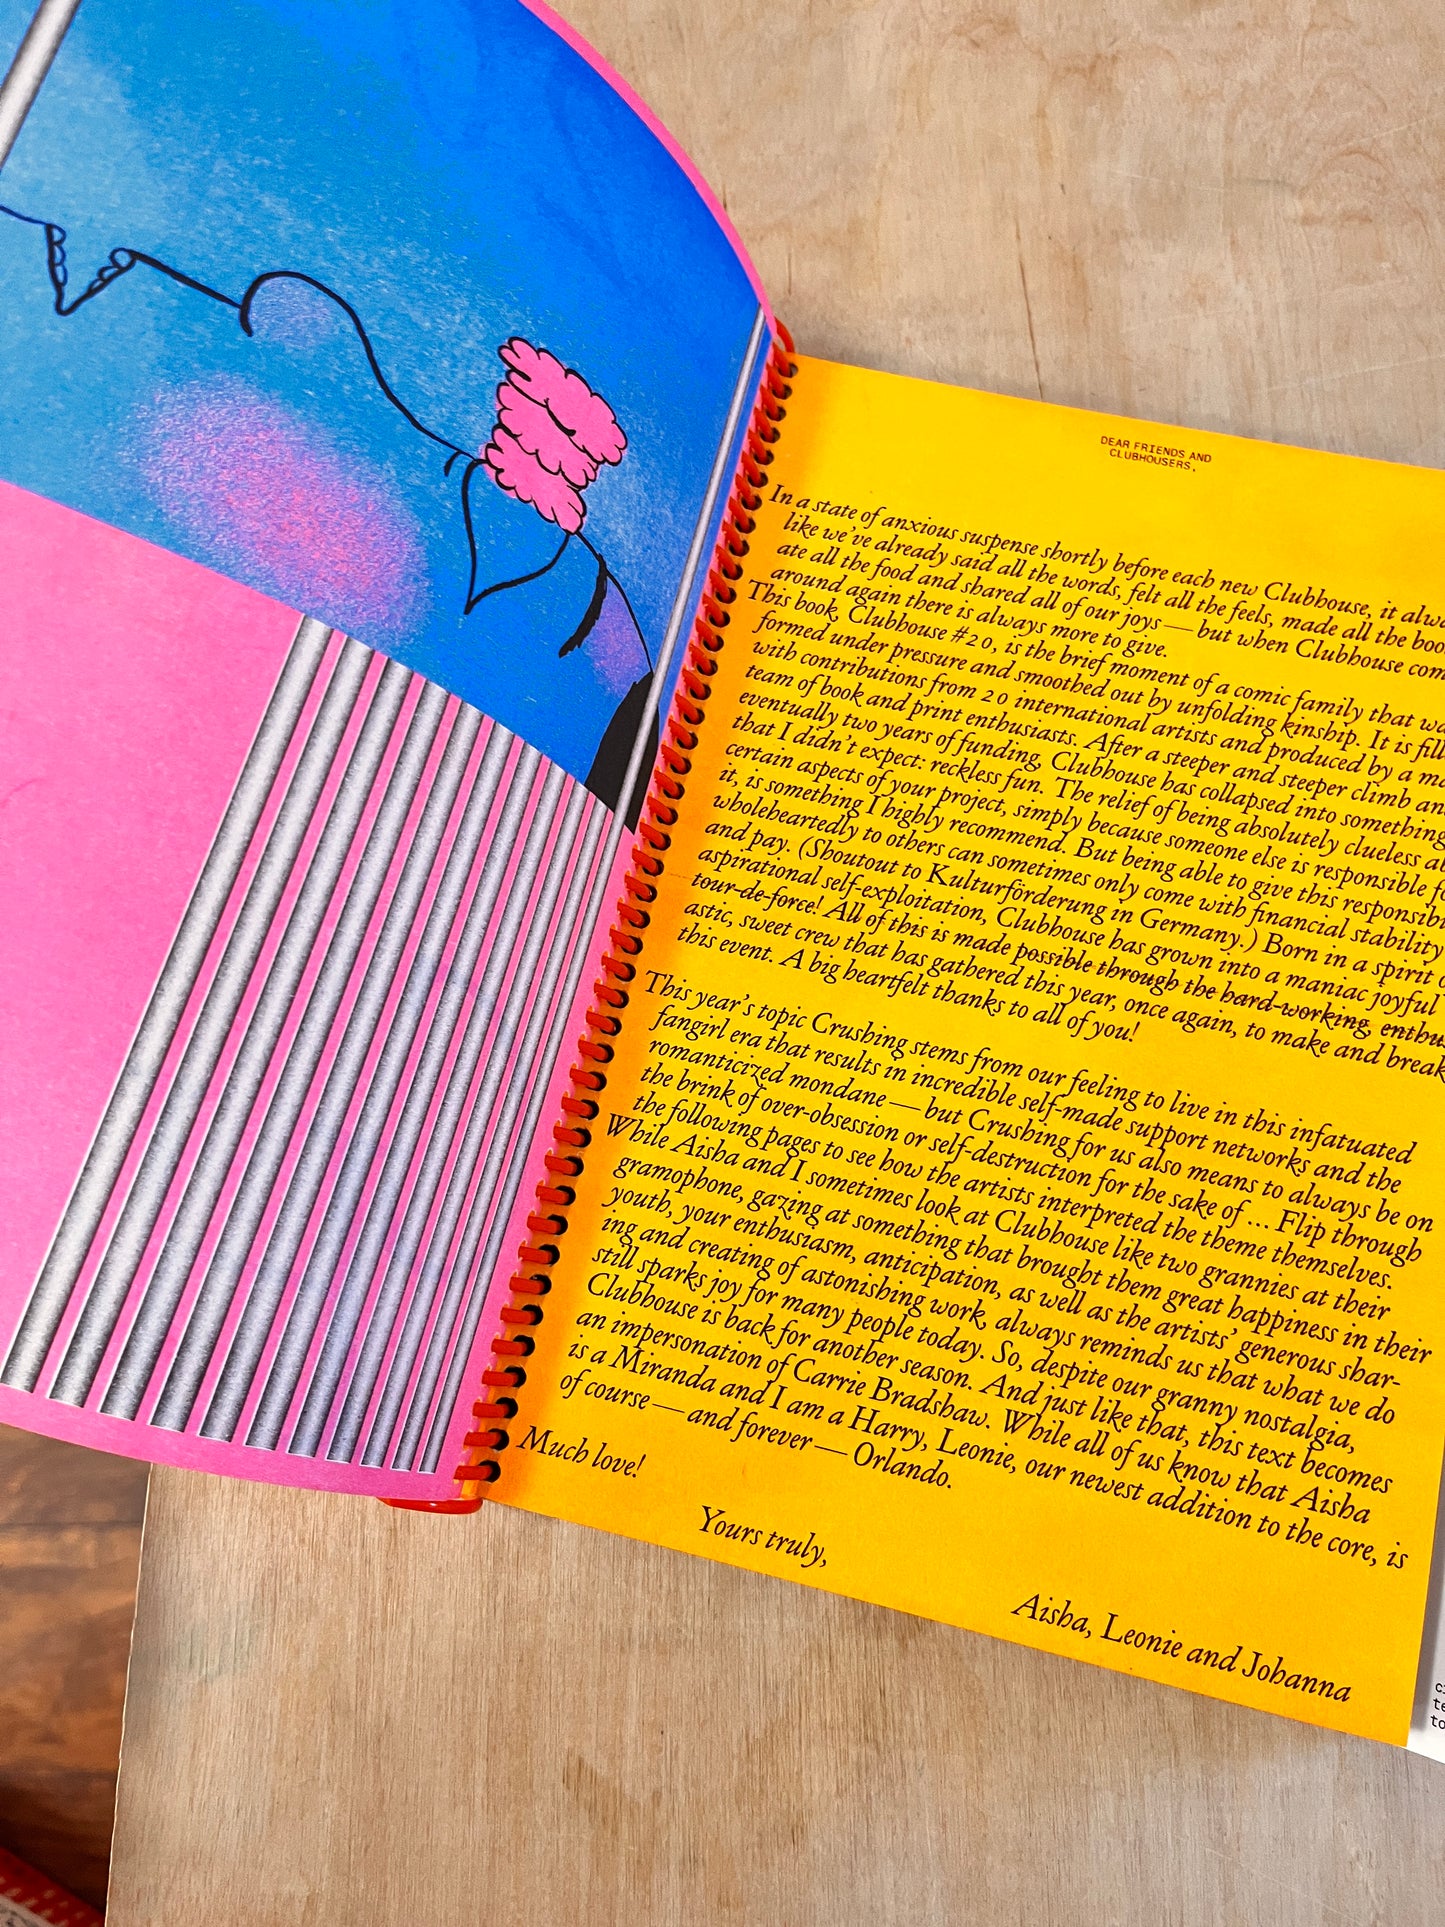 DEAR FRIENDS AND
CLUBHOUSERS,
In a state of anxious suspense shortly before each new Clubhouse, it
like we've already said all the words, felt all the feels, made all the
ate all the food and shared all of our joys — but when Clubhouse
around again there is always more to give.
This book, Clubhouse #20, is the brief moment of a comic family that
formed under pressure and smoothed out by unfolding kinship. It is
with contributions from 20 international artists and produced by a
team of book and print enthusiasts. After a steeper and steeper climb
eventually two years of funding, Clubhouse has collapsed into something
that I didn't expect: reckless fun. The relief of being absolutely clueless
certain aspects of your project, simply because someone else is responsible
it, is something I highly recommend. But being able to give this
wholeheartedly to others can sometimes only come with financial stability
and pay. (Shoutout to Kulturförderung in Germany.) Born in a spirit
aspirational self-exploitation, Clubhouse has grown into a maniac joyful
tour-de-force! All of this is made possible through the hard-working,
astic, sweet crew that has gathered this year, once again, to make and break
this event. A big heartfelt thanks to all of you!
This year's topic Crushing stems from our feeling to live in this infatuated
fangirl era that results in incredible self-made support networks and the
romanticized mondane — but Crushing for us also means to always be on
the brink of over-obsession or self-destruction for the sake of ... Flip through
the following pages to see how the artists interpreted the theme themselves.
While Aisha and I sometimes look at Clubhouse like two grannies at their
gramophone, gazing at something that brought them great happiness in their
youth, your enthusiasm, anticipation, as well as the artists' generous shar-
ing and creating of astonishing work, always reminds us that what we do
still sparks joy for many people today. So, despite our granny nostalgia,
Clubhouse is back for another season. And just like that, this text becomes
an impersonation of Carrie Bradshaw. While all of us know that Aisha
is a Miranda and I am a Harry, Leonie, our newest addition to the core, is
of course — and forever — Orlando.
Much love!
Yours truly,
Aisha, Leonie and Johanna